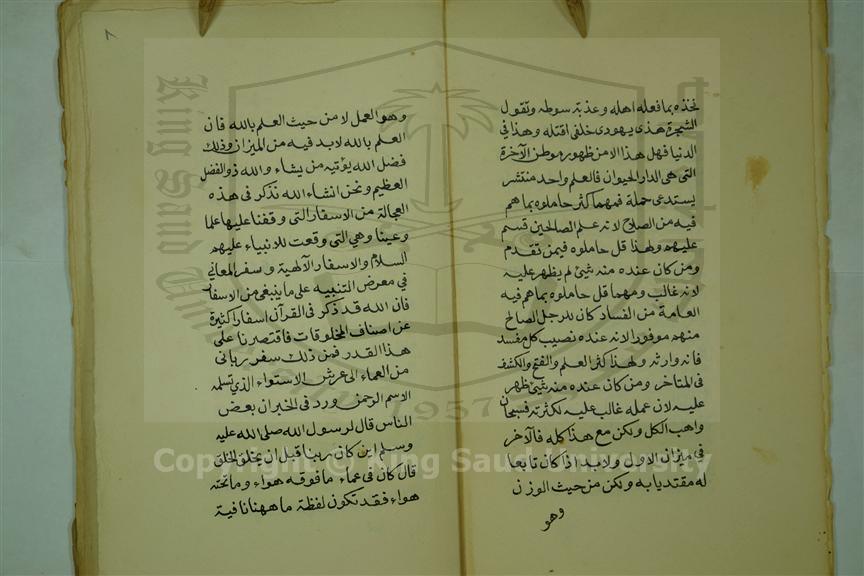 فخذه بما فعله اهله وعذبة سوطه وتقول
الشجرة هذى يهودى خلفى اقتله وهذا فى
الدنيا فهل هذا الا من ظهور موطن الآخرة
التى هى الدار الحيوان فالعلم واحد منتشر
يستدعى حملة فمهما كثر حاملوه بما هم
فيه من الصلاح لانه علم الصالحين قسم
عليهم ولهذا قل حاملوه فيمن تقدم
ومن كان عنده منه شئ لم يظهر عليه
لانه غالب ومهما قل حاملوه بما هم فيه
العامة من الفساد كان للرجل الصالح
منهم موفورا لانه عنده نصيب كل مفسد
فانه وارثه ولهذا كثر العلم والفتح والكشف
فى المتاخر ومن كان عنده منه شئ ظهر
عليه لان عمله غالب عليه لكثرته فسبحان
واهب الكل ولكن مع هذا كله فالآخر
فى ميزان الاول ولا بد اذا كان تابعا
له مقتديا به ولكن من حيث الوزن
وهو
٨
وهو العمل لا من حيث العلم بالله فان
العلم بالله لا بد فيه من الميزان وذلك
فضل الله يؤتيه من يشاء والله ذو الفضل
العظيم ونحن انشاء الله نذكر فى هذه
العجالة من الاسفار التى وقفنا عليها علما
وعينا وهى التى وقعت للانبياء عليهم
السلام والاسفار الآلهية وسفر المعانى
فى معرض التنبيه على ما ينبغى من الاسفار
فان الله قد ذكر فى القرآن اسفارا كثيرة
عن اصناف المخلوقات فاقتصرنا على
هذا القدر فمن ذلك سفر ربانى
من العماء الى عرش الاستواء الذى تسلمه
الاسم الرحمن ورد فى الخبر ان بعض
الناس قال لرسول الله صلى الله عليه
وسلم اين كان ربنا قبل ان يخلق الخلق
قال كان فى عماء ما فوقه هواء وما تحته
هواء فقد تكون لفظة ما ههنا نافية
King Saud University
1957
Copyright © King Saud University